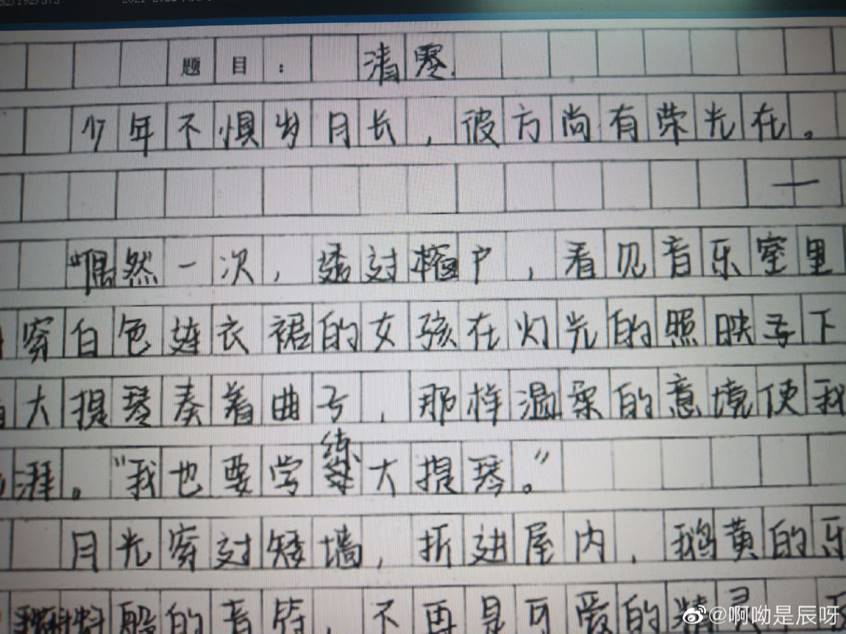 题目：清零
少年不惧岁月长，彼方尚有荣光在。
一
偶然一次，透过窗户，看见音乐室里
穿白色连衣裙的女孩在灯光的照映下
大提琴奏着曲子，那样温柔的意境使我
湃。“我也要学练大提琴。”
月光穿过矮墙，折进屋内，鹅黄的乐
般的音符不再是可爱的精灵，
@啊呦是辰呀